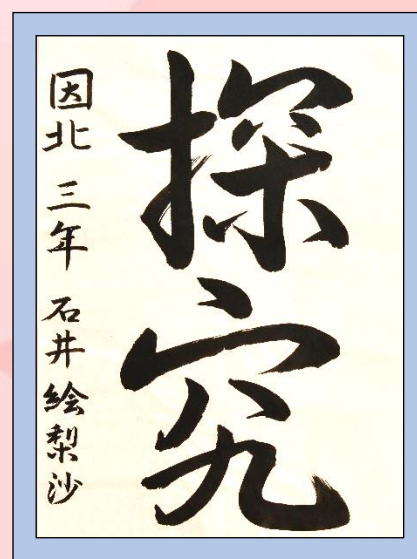 探究
因北 三年 石井絵梨沙